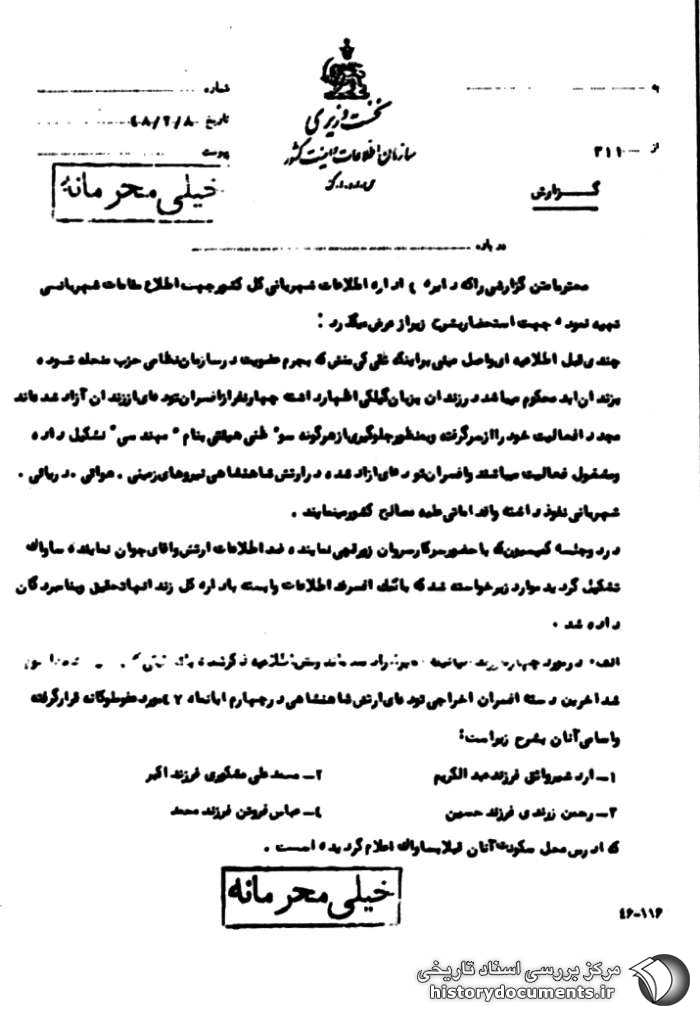 به
شماره
نخست وزیری
تاریخ ۴۸/۲/۸
سازمان اطلاعات و امنیت کشور
از ۳۱۱
پیوست
س.ا.و.ا.ک
خیلی محرمانه
گزارش
درباره
محترما متن گزارشی را که دایره ۱ اداره اطلاعات شهربانی کل کشور جهت اطلاع مقامات شهربانی
تهیه نموده جهت استحضار بشرح زیر از عرض میگذرد :
چندی قبل اطلاعیه ای واصل مبنی بر اینکه تقی کی منش که بجرم عضویت در سازمان نظامی حزب منحله توده
بزندان ابد محکوم میباشد در زندان بزبان گیلکی اظهار داشته چهار نفر از افسران توده ای از زندان آزاد شده اند
مجددا فعالیت خود را از سر گرفته و بمنظور جلوگیری از هرگونه سوء ظنی هیئتی بنام " مهندسی " تشکیل داده
و مشغول فعالیت میباشند و افسران توده ای آزاد شده در ارتش شاهنشاهی نیروهای زمینی . هوائی . دریائی .
شهربانی نفوذ داشته و اقداماتی علیه مصالح کشور مینمایند .
در دو جلسه کمیسیون که با حضور سرکار سروان زیرتهی نماینده ضد اطلاعات ارتش و آقای جوان نماینده ساواک
تشکیل گردید موارد زیر خواسته شد که باتفاق افسر ضد اطلاعات وابسته باداره کل زندانها تحقیق و بنامبردگان
داده شد .
الف - در مورد چهار
شد آخرین دسته افسران اخراجی توده ای ارتش شاهنشاهی در چهارم آبانماه ۴۷ مورد عفو ملوکانه قرار گرفته
و اسامی آنان بشرح زیر است :
۱- اردشیر واثق فرزند عبدالکریم ۲- محمد علی مشکوری فرزند اکبر
۳- رحمن زرندی فرزند حسین ۴- عباس فروتن فرزند محمد
که آدرس محل سکونت آنان قبلا بساواک اعلام گردیده است .
خیلی محرمانه
۴۶-۱۱۶
مرکز بررسی اسناد تاریخی
historydocuments.ir